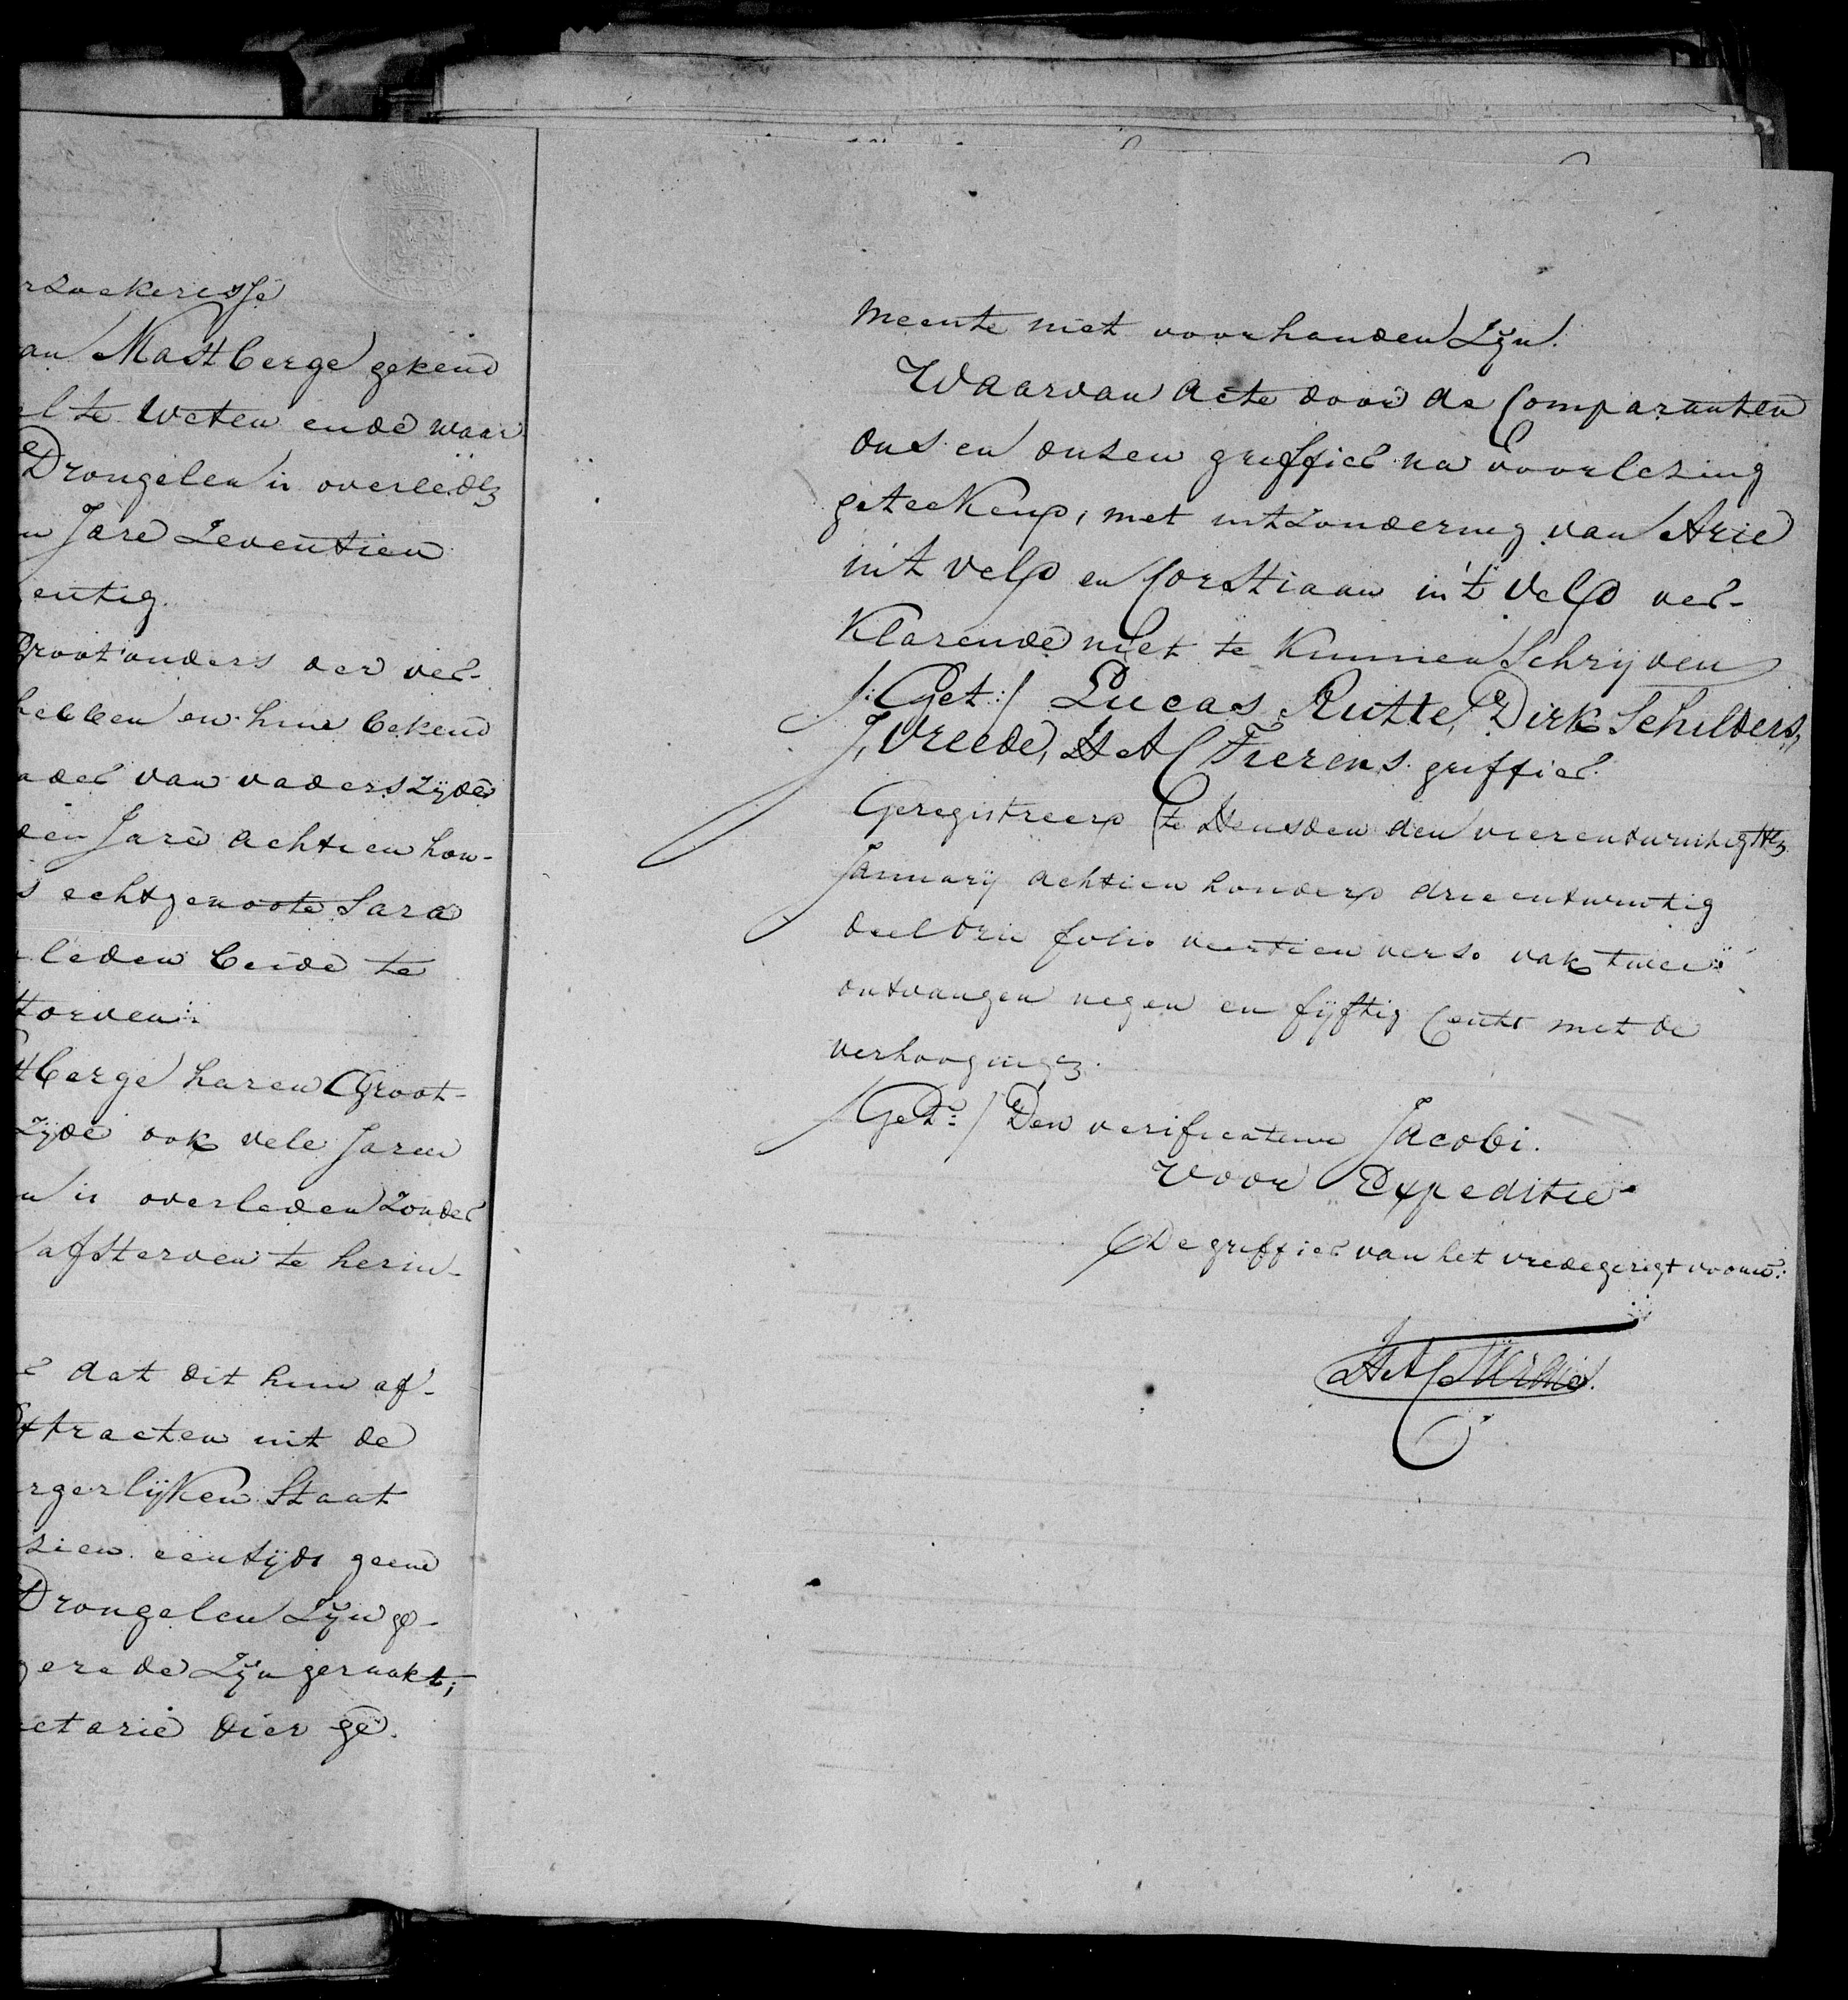 rzoekerisse
an Mastberge gekend
el te weten ende waar
Drongelen is overleden
n Jare Zeventien
entig.
Grootouders der ver-
hebben en hun bekend
ader van vaders zijde
den Jare achtien hon-
s echtgenoote Sara
leden beide te
storven:
tberge haren Groot-
zijde ook vele Jaren
n is overleden zonder
afsterven te herin-
dat dit hun af-
xtracten uit de
rgerlijken Staat
zien eentijds geene
Drongelen Zijn ge-
gerede Zijn geraakt;
etarie dier ge.
meente niet voorhanden Zijn.
Waarvan Acte door de Comparanten
ons en onsen griffier na voorlezing
geteekend, met uitzondering van Arie
in't veld en Corstiaan in't veld ver-
klarende niet te kunnen Schrijven
/:Get:/ Lucas Rutte, Dirk Schilders,
J, Vreede, H A C Fierens griffier.
Geregistreerd te Heusden den vierentwintigsten
January achtien honderd drieentwintig
deel drie folio veertien verso vak twee:
ontvangen negen en fijftig Cents met de
verhoogingen.
/Get:/ Den verificateur Jacobi.
Voor Expeditie
De griffier van het vredegerigt voorn: